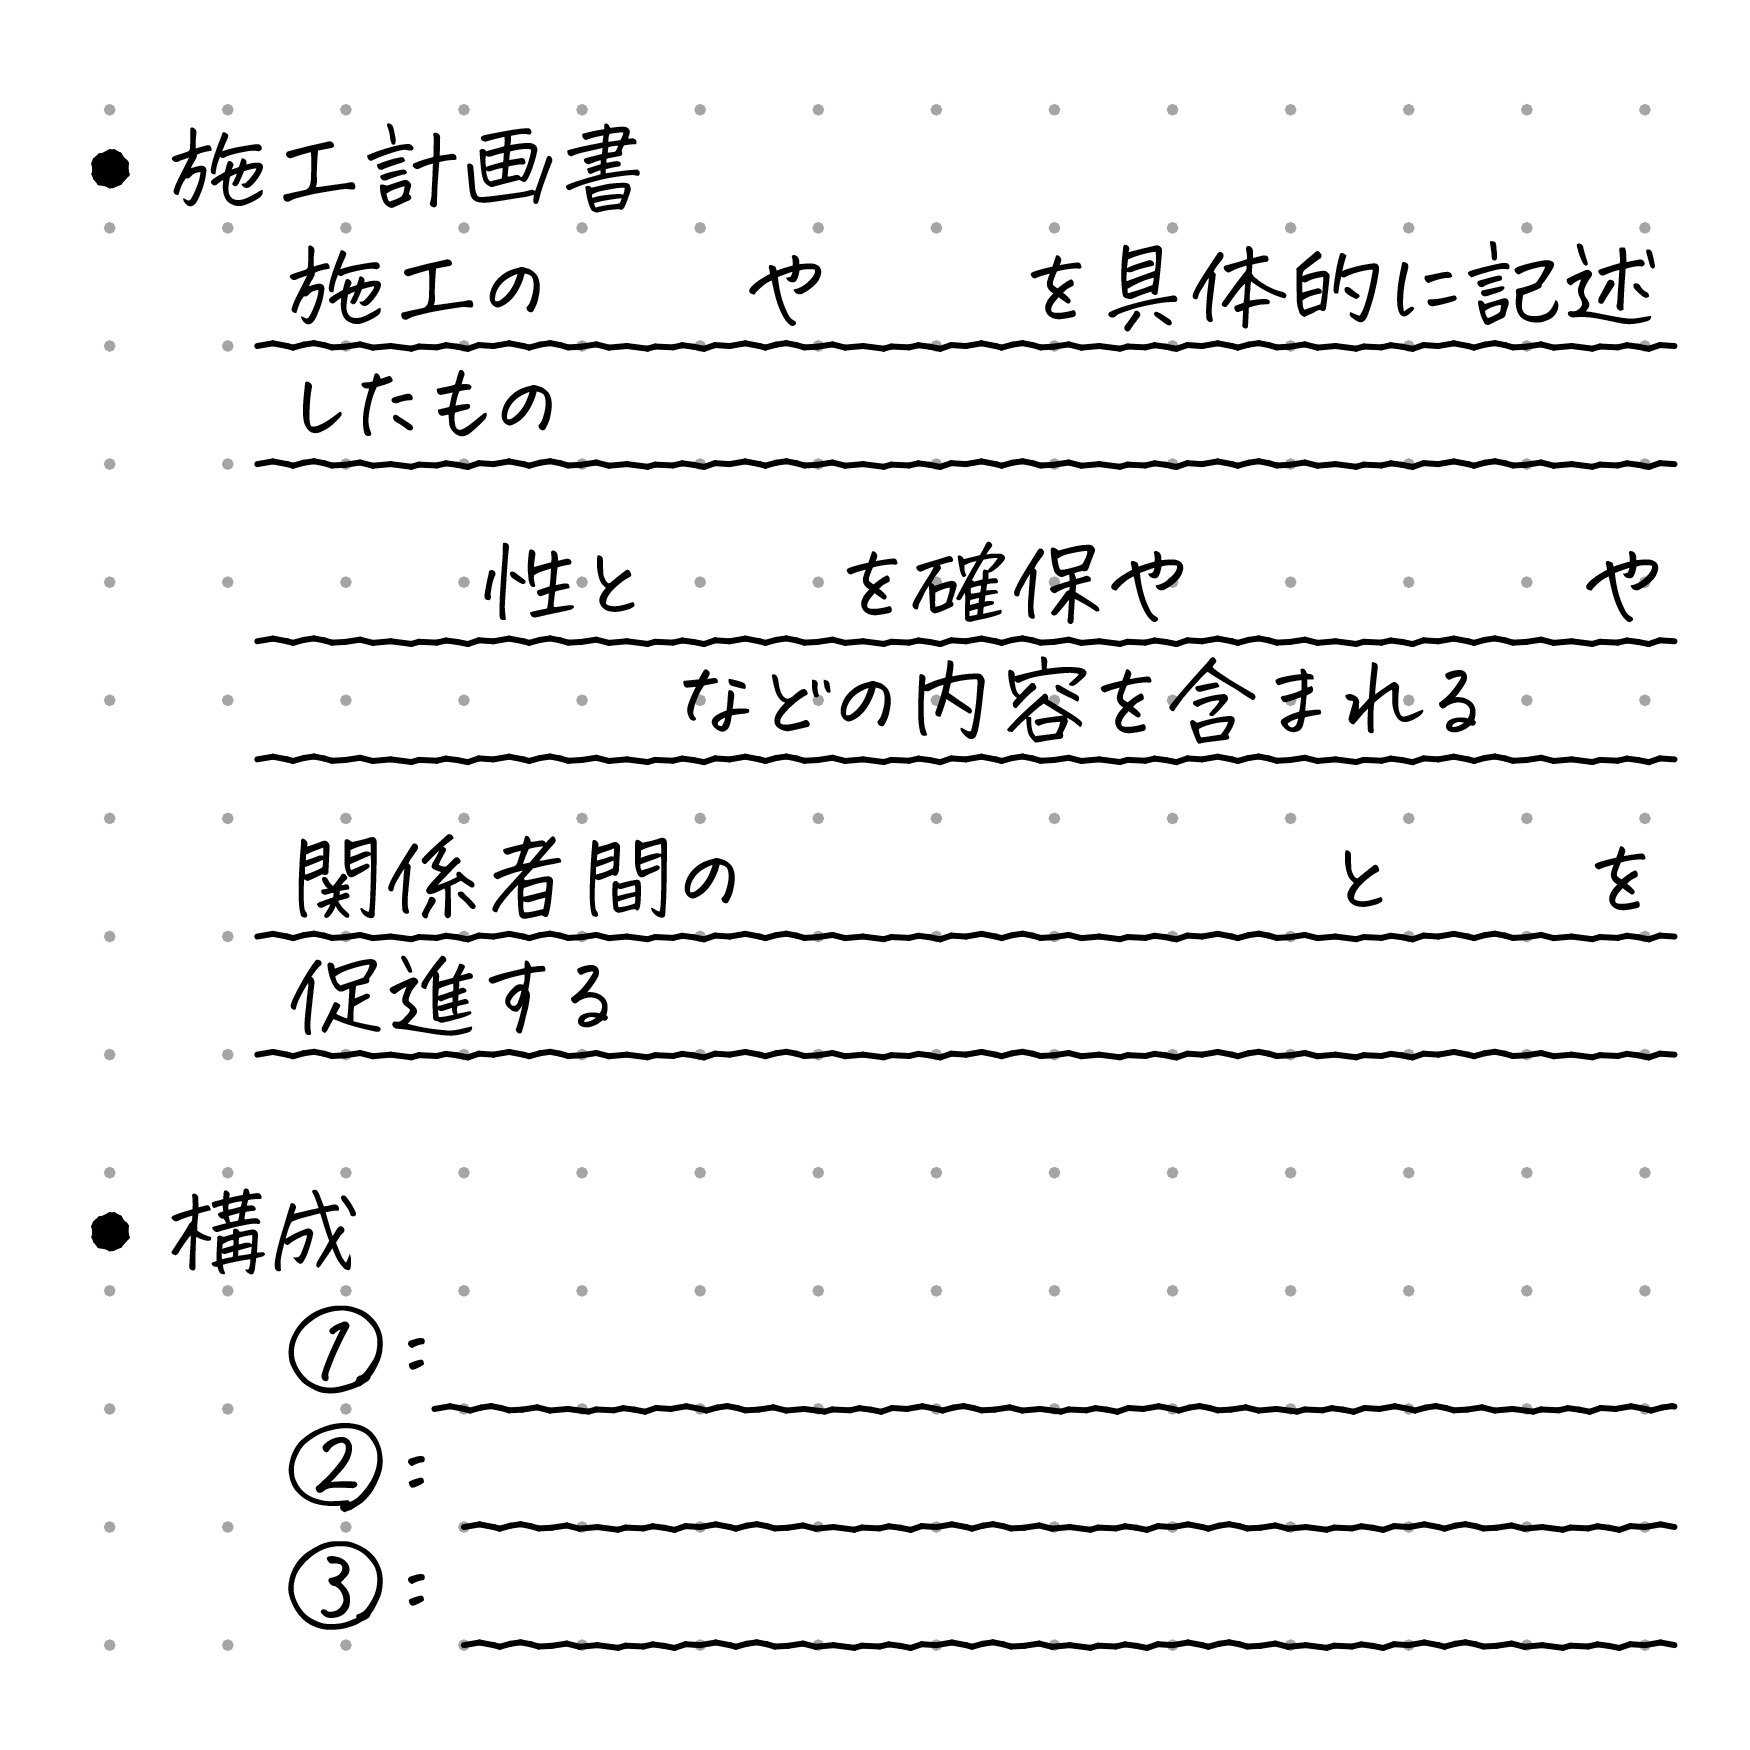 ● 施工計画書
施工の　　や　　を具体的に記述
したもの
性と　　を確保や　　　　や
などの内容を含まれる
関係者間の　　　　　　と　　を
促進する
● 構成
①：
②：
③：